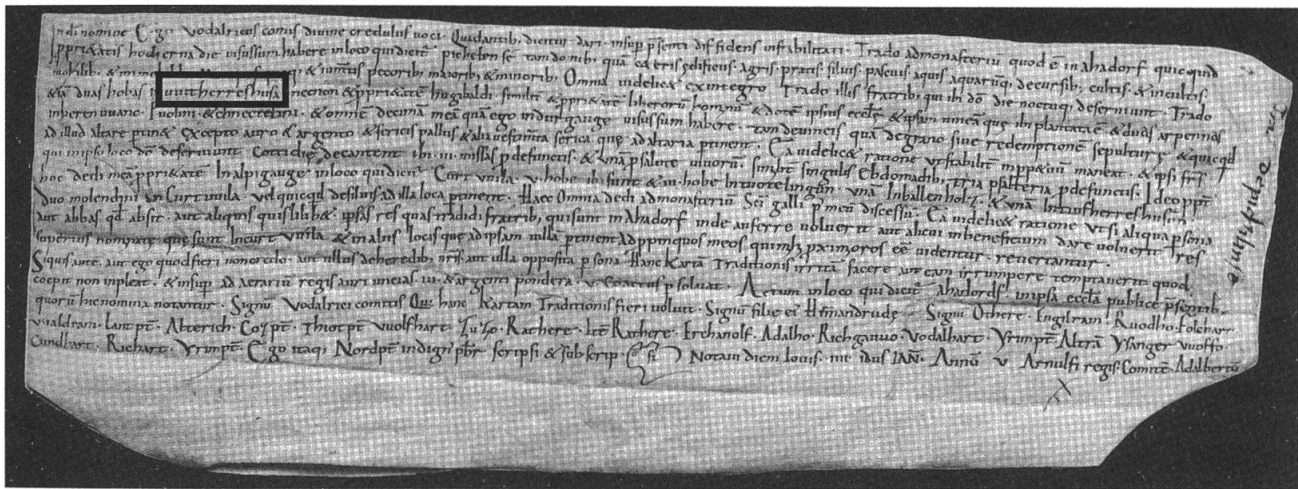 In di nomine Ego Vodalricus comis divine credulus voci. Qui dantib; dicitur dari. insup psenti diffidens instabilitati. Trado ad monasteriū quod ē in ahadorf quicquid
ppriętatis hodierna die visus sum habere in loco qui dicit̄ pichelense tam domib; quā cęteris ędificiis. agris. pratis. silvis. pascuis. aquis. aquarūq; decursib; cultis. & incultis.
mobilib; & & iumtis pecorib; maiorib; & minorib; Omnia videlic& ex integro Trado illis fratrib; qui ibi dō die noctuq; deserviunt. Trado
&iā duas hobas vvitherreshusā necnon & ppriętatē hugibaldi similit & ppriętatē liberorū hominū & dotē ipsius ecclę & ipsam vineā quę ibi plantata ē & duas arpennas
inherenvvanc. & omnē decimā meā quā ego in durgauge visus sum habere. tam de vineis quā de grano sive redemptionē sepulturę & quicqd
ad illud altare ptin& excepto auro & argento & sericis palliis & alia vestimta serica que ad altaria ptinent. Ea videlic& ratione ut stabilit in ppetuū maneat. & ipsi frēs
qui in ipso loco dō deserviunt Cottidie decantent ibi III missas p defunctis. & unā p salute vivorū similit singulis Ebdomadib; tria psalteria p defunctis. Ideo ppt
hoc dedi meā ppriętatē In alpigauge in loco qui dicit̄ Curtvvila. V. hobe ibi sunt & III hobe In vvotelingun. unā In ballenholz. & unā In vvitherreshusun.
Duo molendini In Curtvvila vel quicqd de silvis ad illa loca ptinent. Haec Omnia dedi ad monasteriū Sci galli p meū discessū. Ea videlic& ratione ut si aliqua psona
aut abbas qd absit. aut aliquis quislib& ipsas res quas tradidi fratrib; qui sunt in Ahadorf inde auferre voluerit aut alicui in beneficium dare voluerit res
superius nominate que sunt In curtvvila & in aliis locis que ad ipsam villā ptinent Ad ppinquos meos qui m pximores eē videntur. revertantur.
Siquis aute. aut ego quod fieri non credo. aut ullus de heredib; nris. aut ulla opposita psona Hanc Kartā Traditionis irritā facere aut eam irrumpere temptaverit quod
coepit non impleat. & insup ad aerariū regis auri uncias. III. & argenti pondera. V. coactus psolvat. Actum in loco qui dicit̄ Ahadorf. in ipsa ecclā publice psentib;
quorū hic nomina notantur. Signū Vodalrici comitis Qui hanc Kartam Traditionis fieri voluit. Signū filię ei Hirmindrude. Signū Othere. Engilram. Ruodho. Folchart.
vvaldram. Lantpt. Alterich. Cozpt. Thiotpt. vvolfhart. Zuzo. Rathere. Itē Rathere. Erchanolf. Adalho. Richgauvo. Vodalhart. Vrimpt. Altrā. Ysanger. vvoffo.
Cundhart. Richart. Vrimpt. Ego itaq; Nordpt indign pbr scripsi & subscrip. Notavi diem Iovis. IIII idus IAN. Annū V Arnulfi regis. Comitē Adalbertū